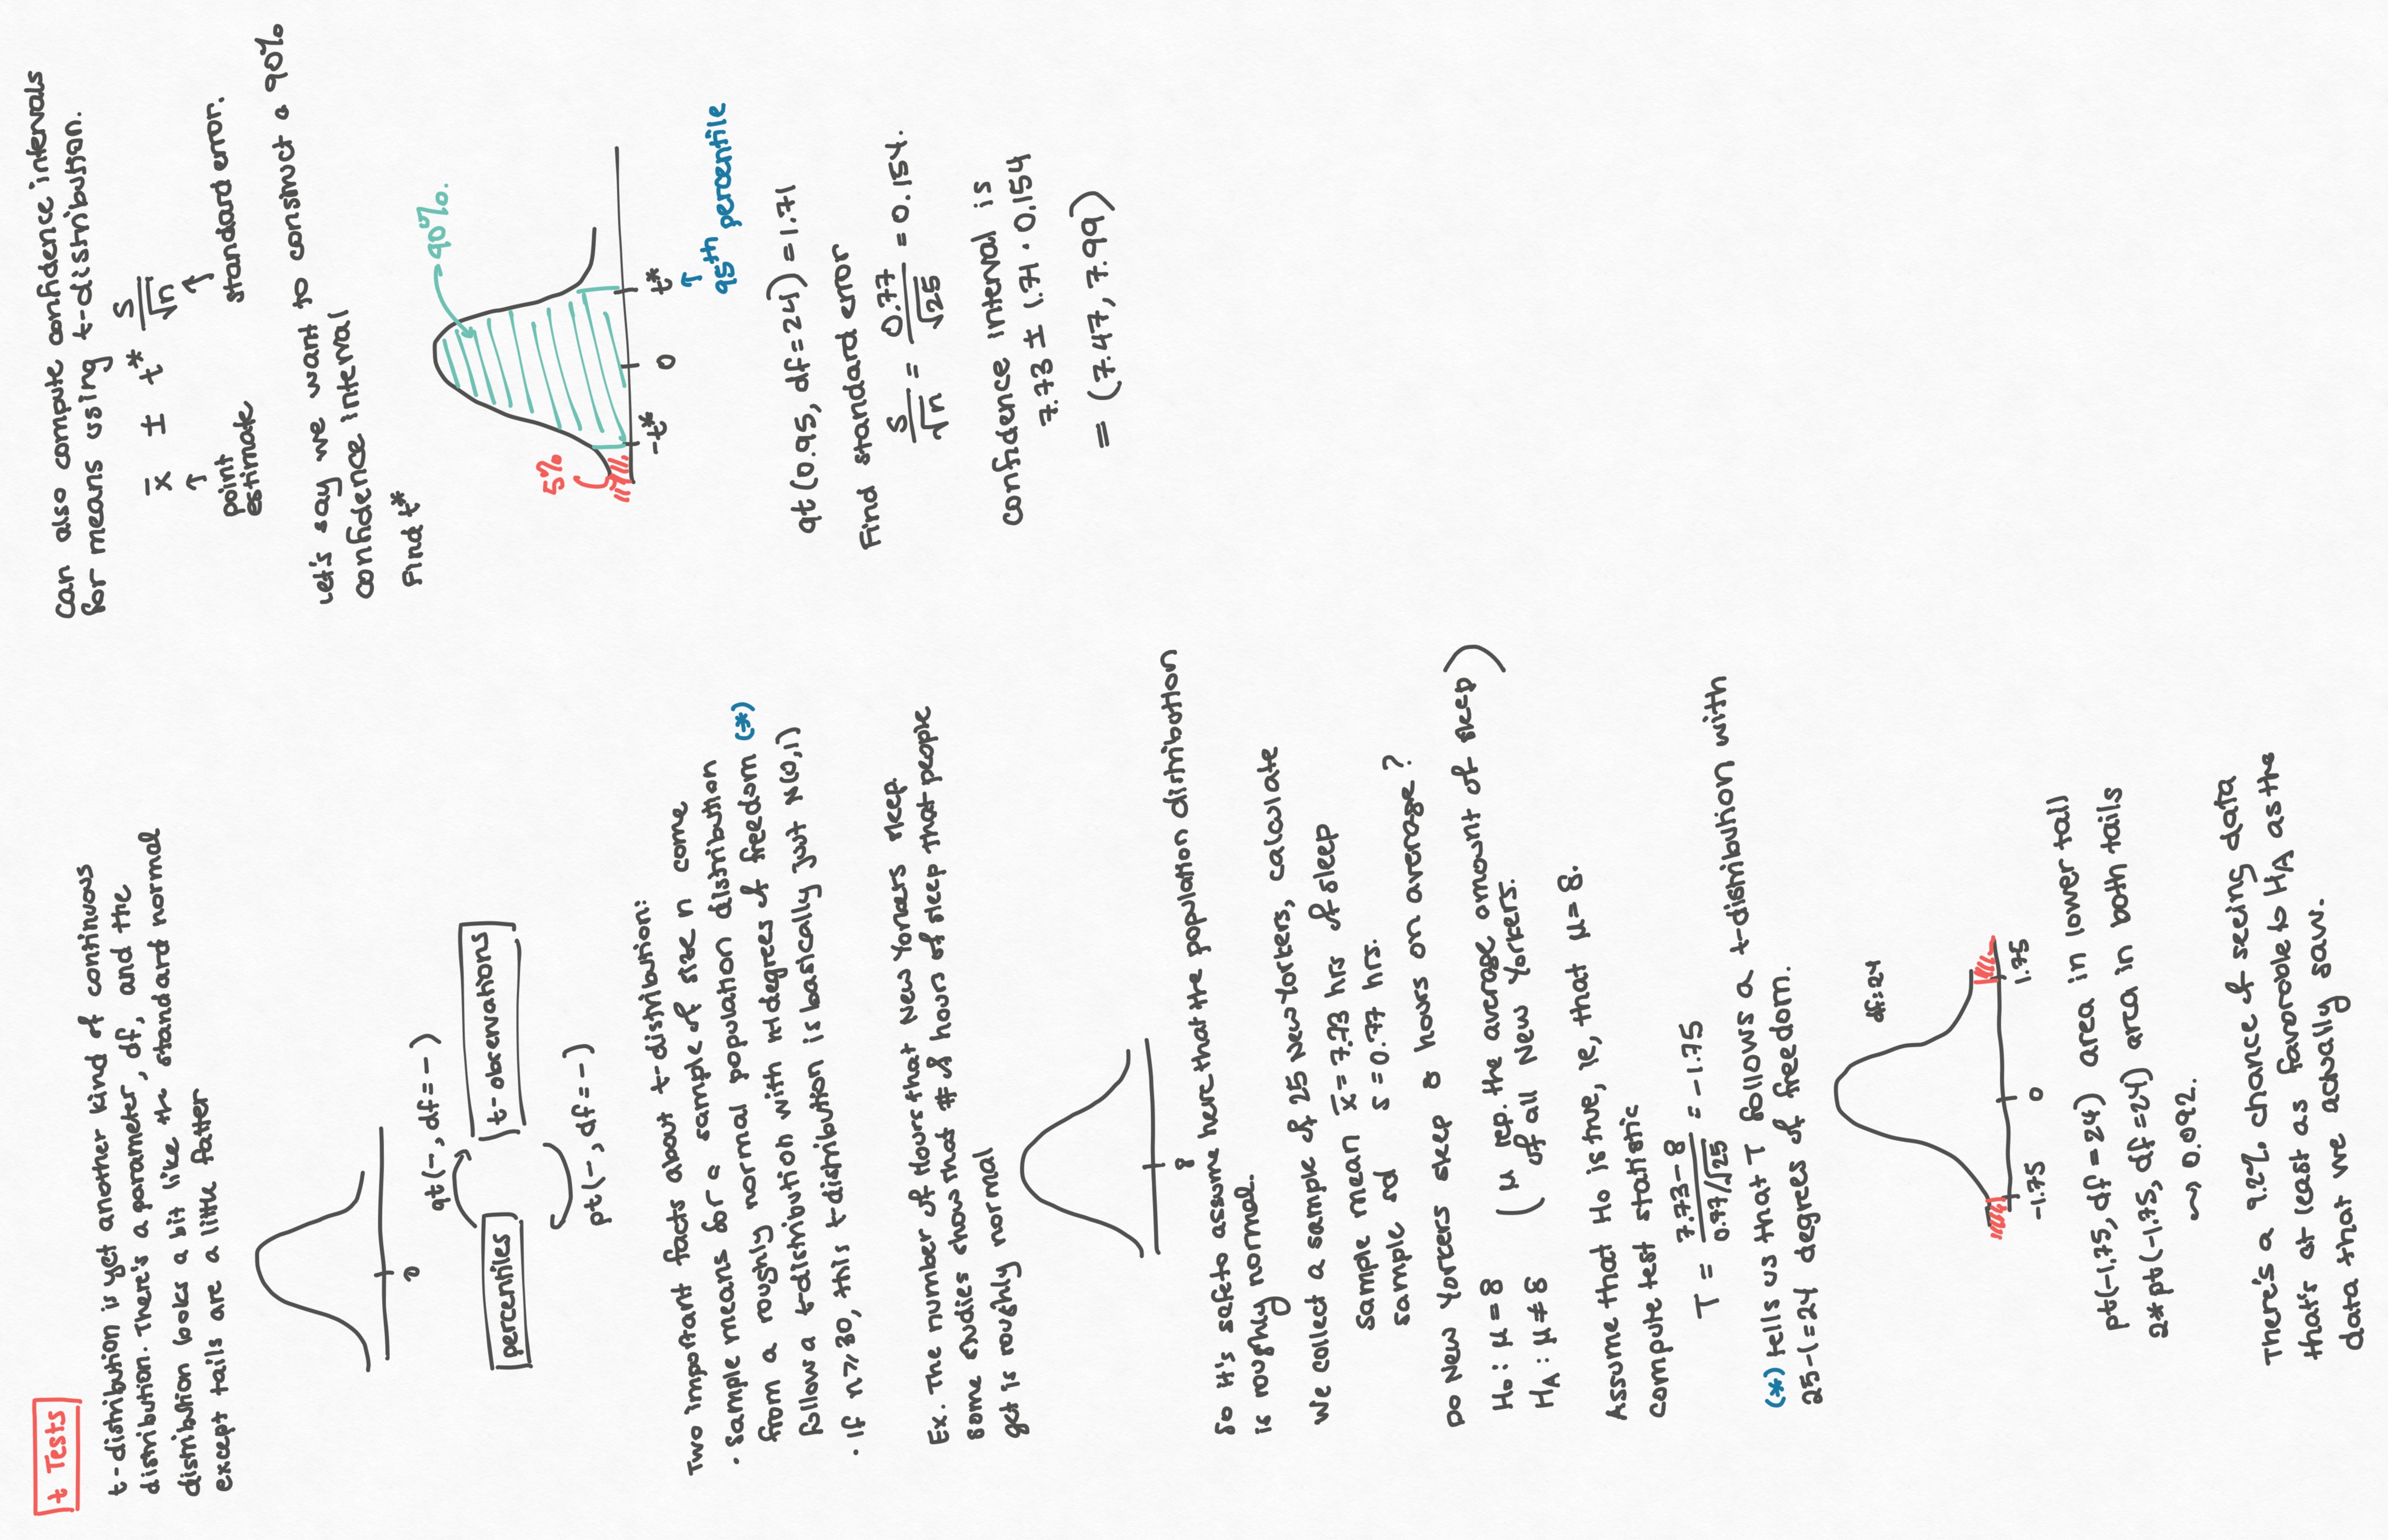 t Tests
t-distribution is yet another kind of continuous
distribution. There's a parameter, df, and the
distribution looks a bit like the standard normal
except tails are a little fatter
0
qt(-, df = -)
percentiles
t-observations
pt(-, df = -)
Two important facts about t-distribution:
· Sample means for a sample of size n come
from a roughly normal population distribution
follow a t-distribution with n-1 degrees of freedom (*)
· If n ≥ 30, this t-distribution is basically just N(0,1)
Ex. The number of Hours that New Yorkers sleep.
Some studies show that # of hours of sleep that people
get is roughly normal
8
So it's safe to assume here that the population distribution
is roughly normal.
We collect a sample of 25 New Yorkers, calculate
sample mean x̄ = 7.73 hrs of sleep
sample sd s = 0.77 hrs.
Do New Yorkers sleep 8 hours on average?
H₀ : μ = 8
H_A : μ ≠ 8
(μ rep. the average amount of sleep
of all New Yorkers.)
Assume that H₀ is true, ie, that μ = 8.
Compute test statistic
T = (7.73 - 8) / (0.77/√25) = -1.75
(*) tells us that T follows a t-distribution with
25-1 = 24 degrees of freedom.
df: 24
-1.75 0 1.75
pt(-1.75, df = 24) area in lower tail
2*pt(-1.75, df = 24) area in both tails
⇝ 0.092.
There's a 9.2% chance of seeing data
that's at least as favorable to H_A as the
data that we actually saw.
Can also compute confidence intervals
for means using t-distribution.
x̄ ± t* s/√n
↑ ↑
point
estimate
standard error.
Let's say we want to construct a 90%
confidence interval
Find t*
90%.
5%
-t* 0 t*
↑
95th percentile
qt(0.95, df = 24) = 1.71
Find standard error
s/√n = 0.77/√25 = 0.154.
Confidence interval is
7.73 ± 1.71 · 0.154
= (7.47, 7.99)